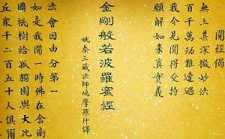 開經偈
無上甚深微妙法
百千萬劫難遭遇
我今見聞得受持
願解如來真實義
金剛般若波羅蜜經
姚秦三藏法師鳩摩羅什譯
法會因由分第一
如是我聞一時佛在舍衛
國祇樹給孤獨園與大比
丘眾千二百五十人俱爾